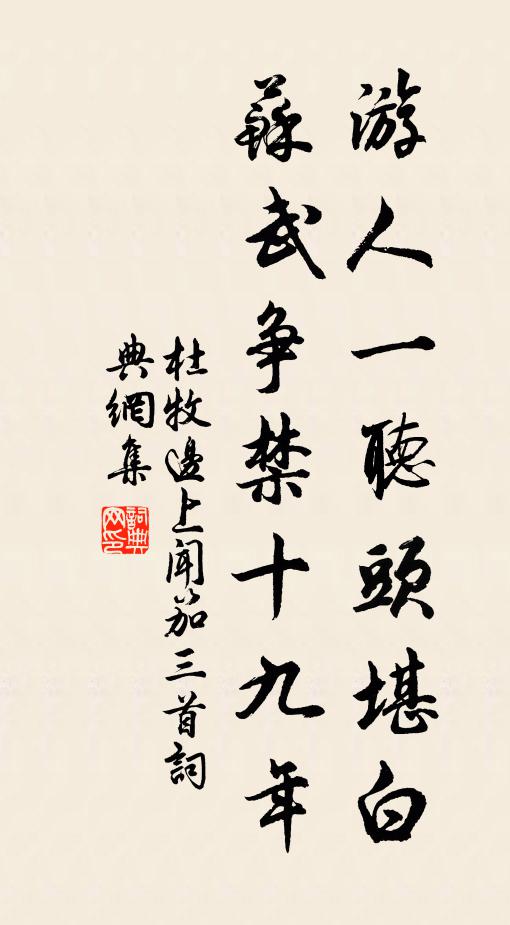 游人一聽頭堪白
蘇武爭禁十九年
杜牧邊上聞笳三首詞
典網集
詞典
网印